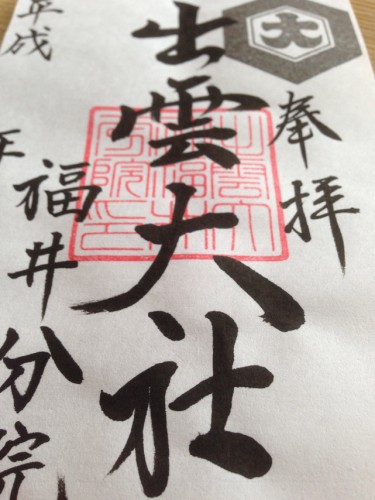 大
奉拝
出雲大社
福井分院
平成
年